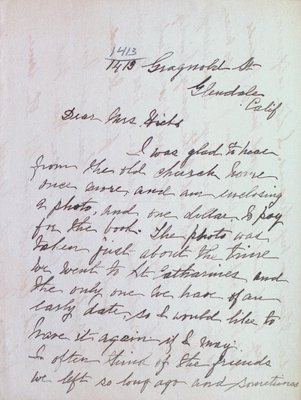 1413
1413 Gragnold St
Glendale
Calif
Dear Mrs Hicks
I was glad to hear
from the old church home
once more, and am enclosing
a photo, and one dollar to pay
for the book. The photo was
taken just about the time
we went to St Catharines and
the only one we have of an
early date, so I would like to
have it again if I may.
I often think of the friends
we left so long ago and sometimes